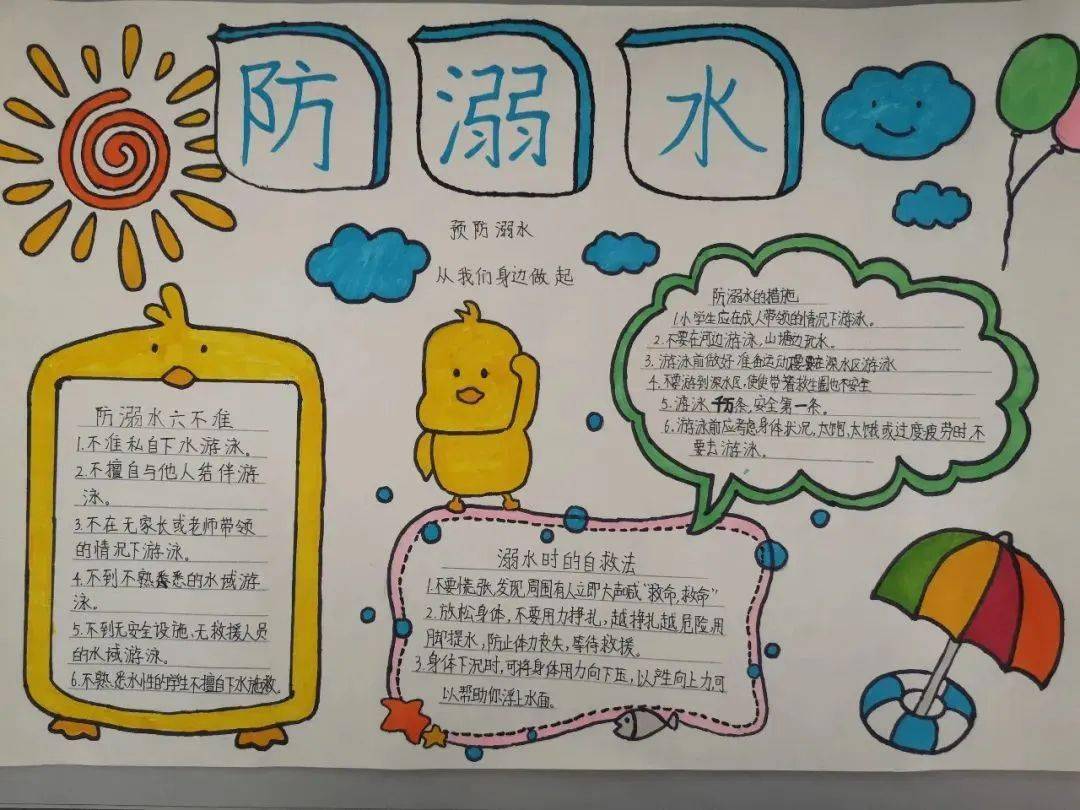 防溺水
预防溺水
从我们身边做起
防溺水六不准
1.不准私自下水游泳。
2.不擅自与他人结伴游
泳。
3.不在无家长或老师带领
的情况下游泳。
4.不到不熟悉的水域游
泳。
5.不到无安全设施、无救援人员
的水域游泳。
6.不熟悉水性的学生不擅自下水施救。
防溺水的措施
1.小学生应在成人带领的情况下游泳。
2.不要在河边游泳,山塘边玩水。
3.游泳前做好准备运动,不要在深水区游泳
4.不要游到深水区,使使带着救生圈也不安全
5.游泳千万条,安全第一条。
6.游泳前应考虑身体状况,太饱,太饿或过度疲劳时,不
要去游泳。
溺水时的自救法
1.不要慌张,发现周围有人立即大声喊“救命,救命”
2.放松身体,不要用力挣扎,越挣扎越危险,用
脚提水,防止体力丧失,等待救援。
3.身体下沉时,可将身体用力向下压,以产生向上力,可
以帮助你浮上水面。